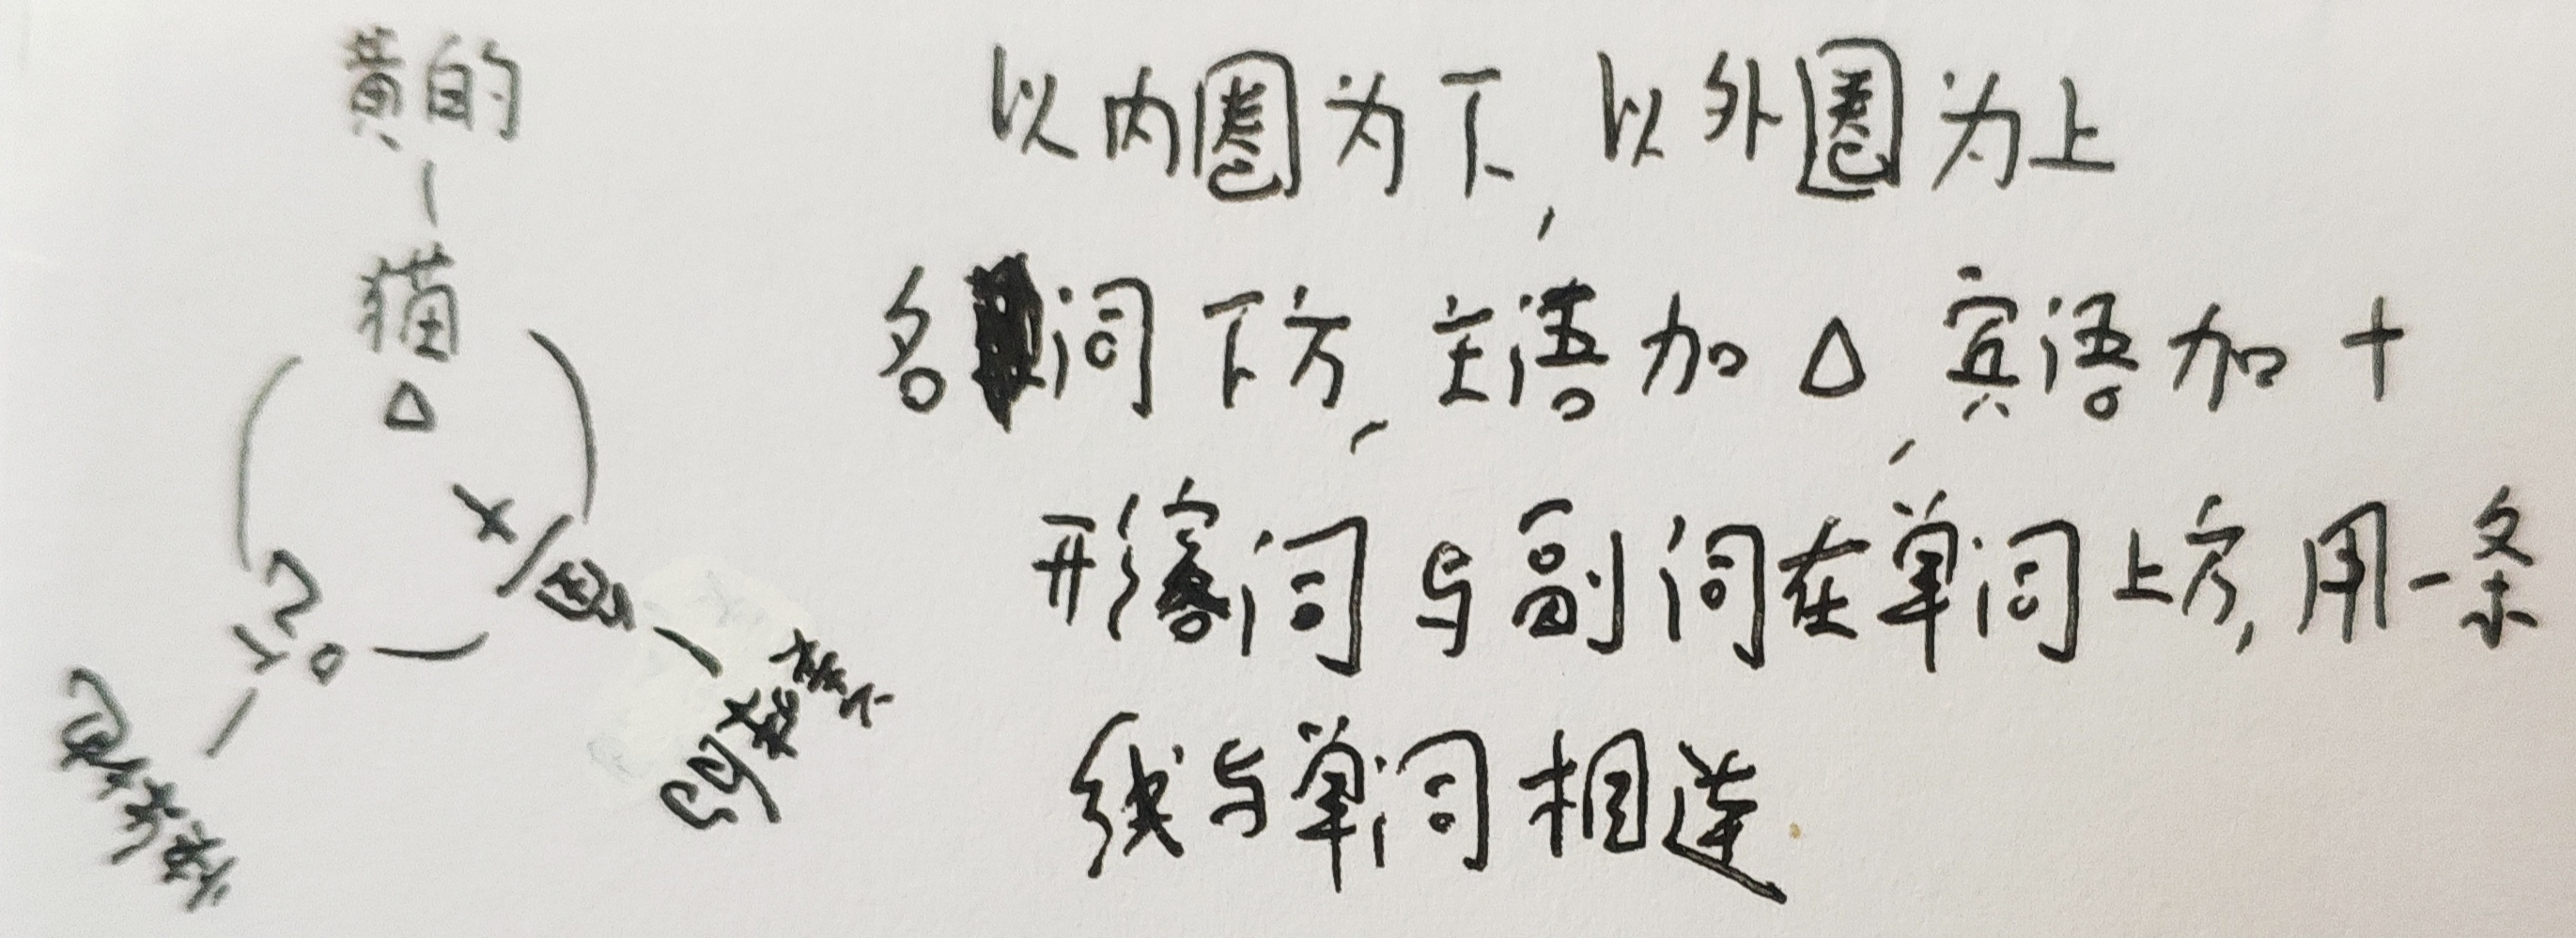 黄的
猫
△
以内圈为下,以外圈为上
名词下方,主语加△,宾语加+
形容词与副词在单词上方,用一条
线与单词相连